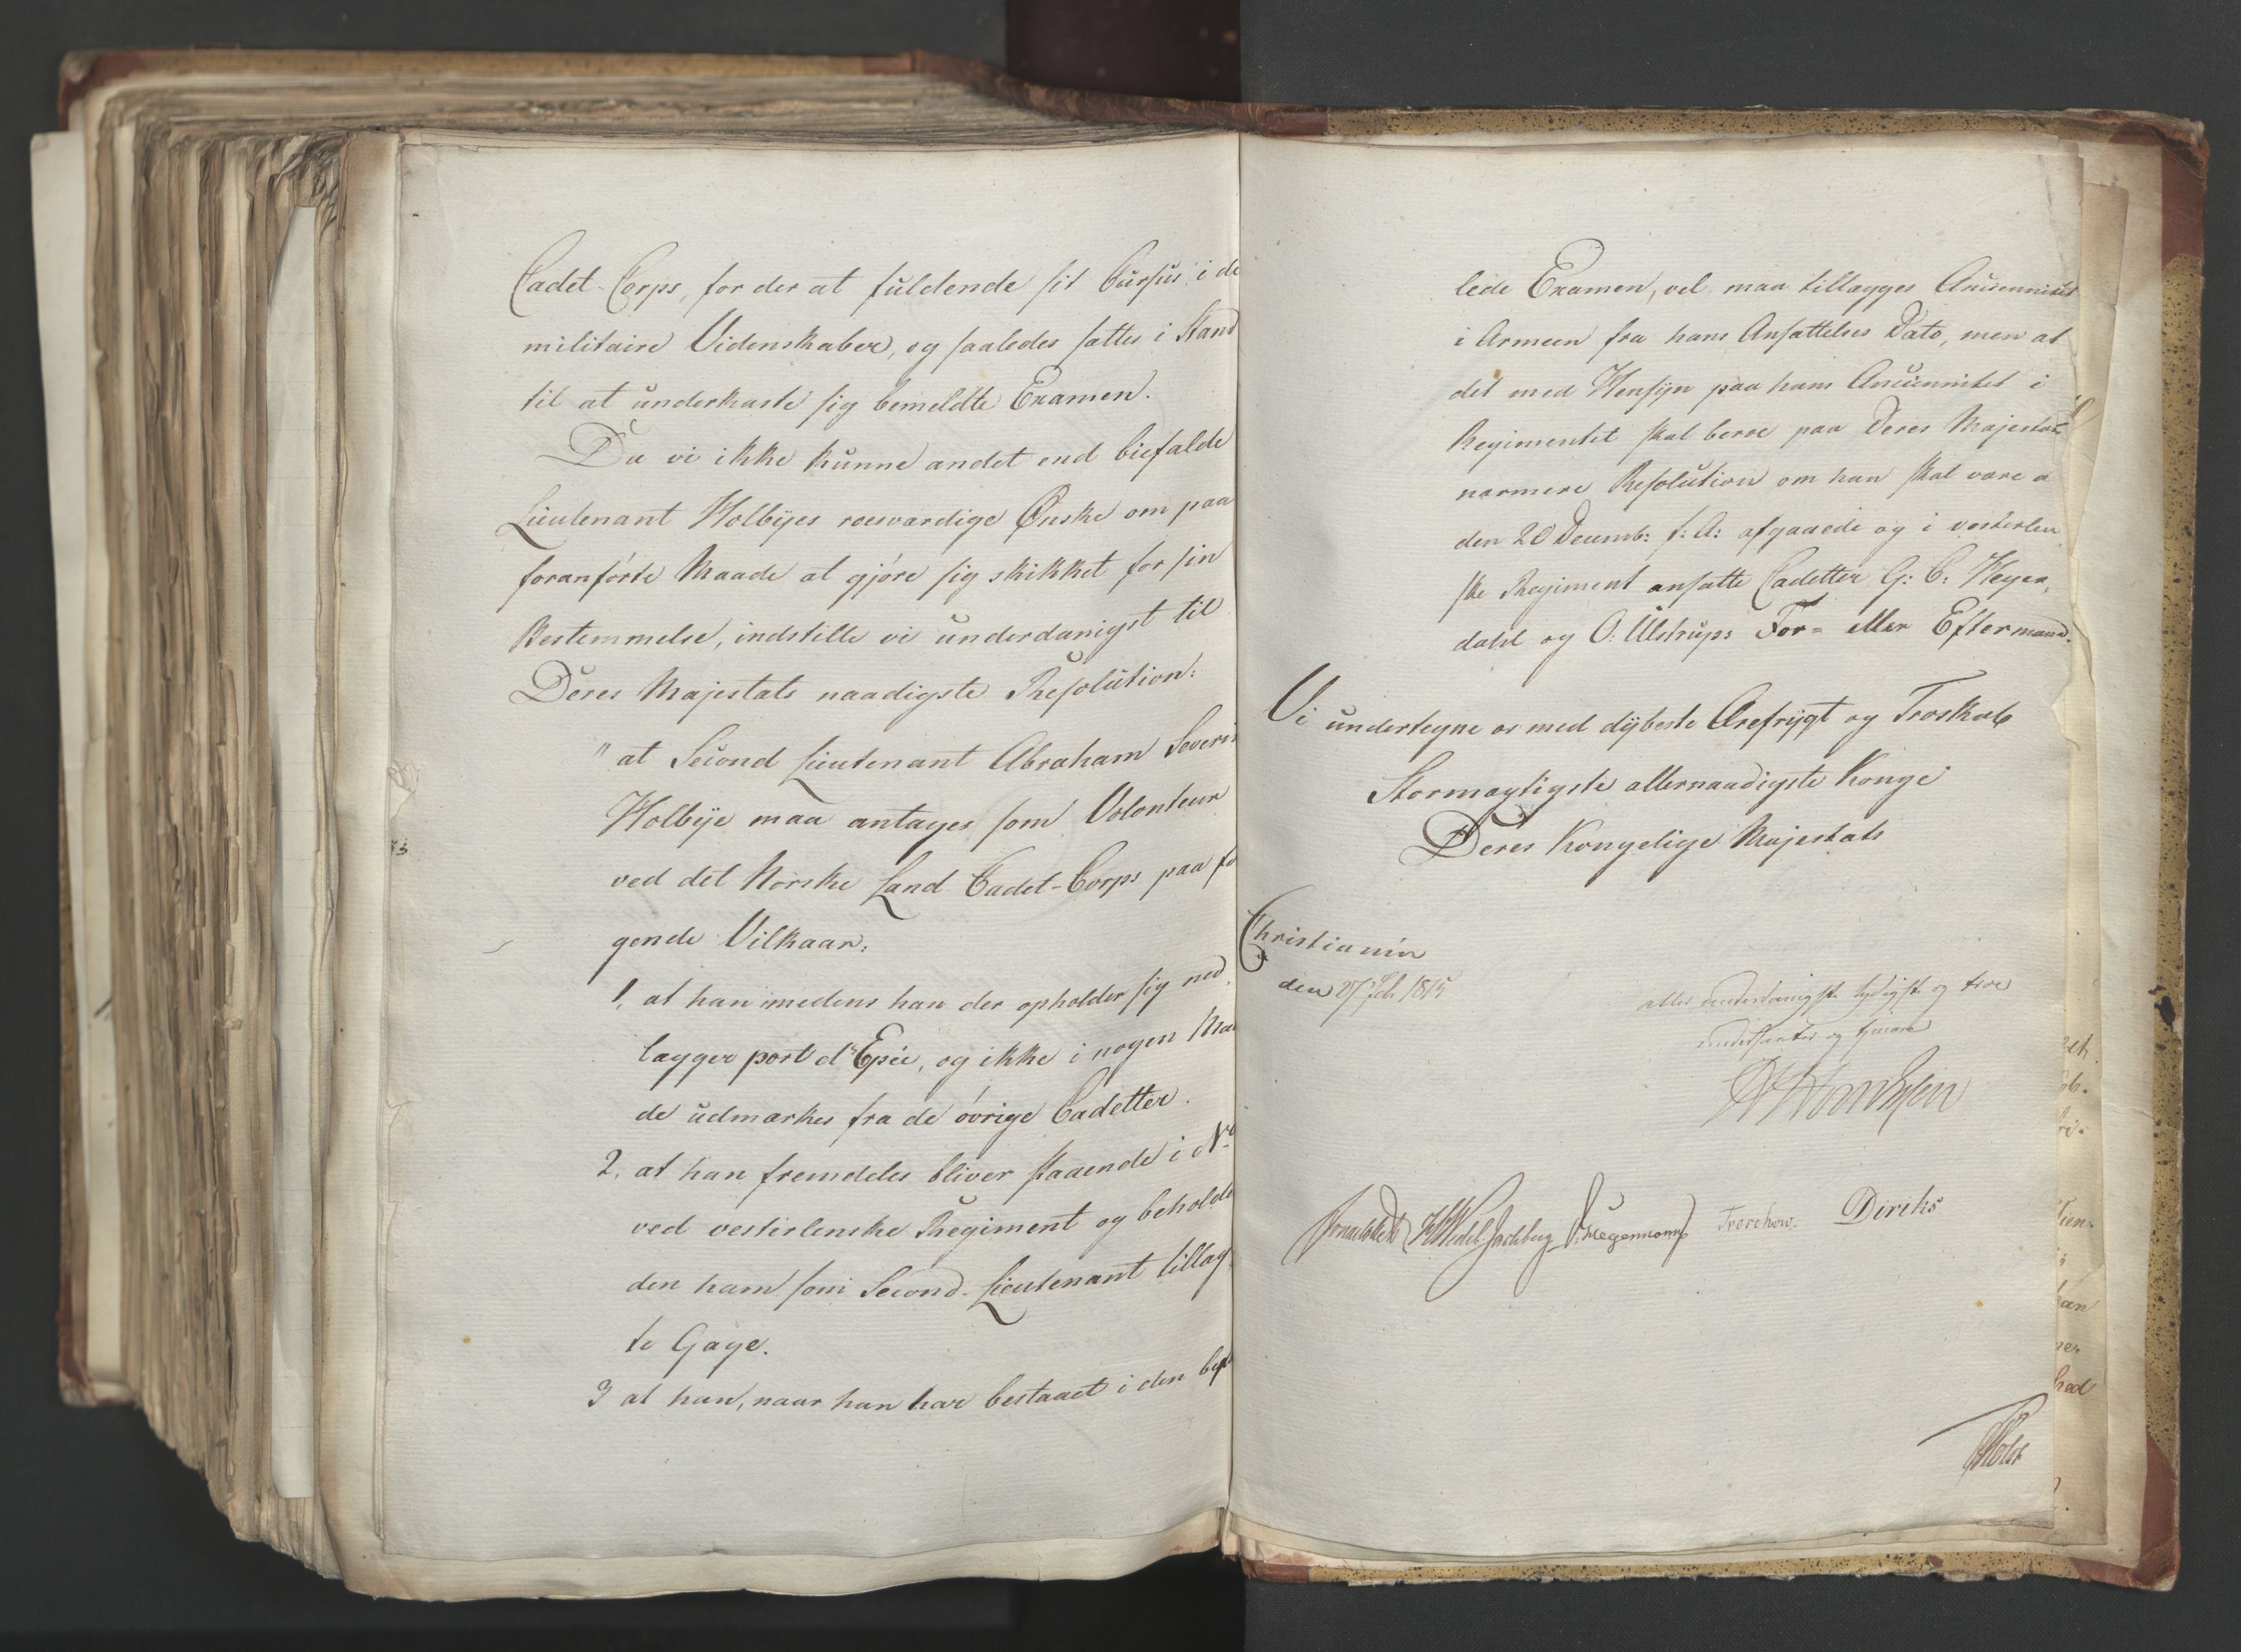 Cadet-Corps, for der at fuldende sit Cursus i de
militaire Videnskaber, og saaledes sættes i Stand
til at underkaste sig bemeldte Examen.
Da vi ikke kunne andet end biefalde
Lieutenant Holbÿes roesværdige Ønske om paa
foranførte Maade at gjøre sig skikket for sin
Bestemmelse, indstille vi underdanigst til
Deres Majestæts naadigste Resolution:
" at Second Lieutenant Abraham Severin
Holbÿe maa antages som Volonteur
ved det Norske Land Cadet-Corps paa fø
gende Vilkaar:
1, at han imedens han der opholder sig ned,
lægger port d'Epée, og ikke i nogen Maa
de udmærkes fra de øvrige Cadetter.
2, at han fremdeles bliver staaende i No
ved vesterlenske Regiment og beholde
den ham som Second-Lieutenant tillag
te Gage.
3 at han, naar han har bestaaet i den bef
lede Examen, vel maa tillægges Anciennitet
i Armeen fra hans Ansættelses Dato, men at
det med Hensÿn paa hans Anciennitet i
Regimentet skal beroe paa Deres Majestæts
nærmere Resolution om han skal være a
den 20 Decemb: f: A: afgaaede og i vesterlen,
ske Regiment ansatte Cadetter G: C: Heyer,
dahl og O: Ulstrups For= eller Eftermand.
Vi undertegne os med dÿbeste Ærefrÿgt og Troskab
Stormægtigste allernaadigste Konge
Deres Kongelige Majestæts
Christiania
den 27 Feb 1815
aller underdanigste lydigste og troe
undersaatter og tjenere
Sommerhielm Wedel Jarlsberg Hegermann Treschow. Diriks
Holst